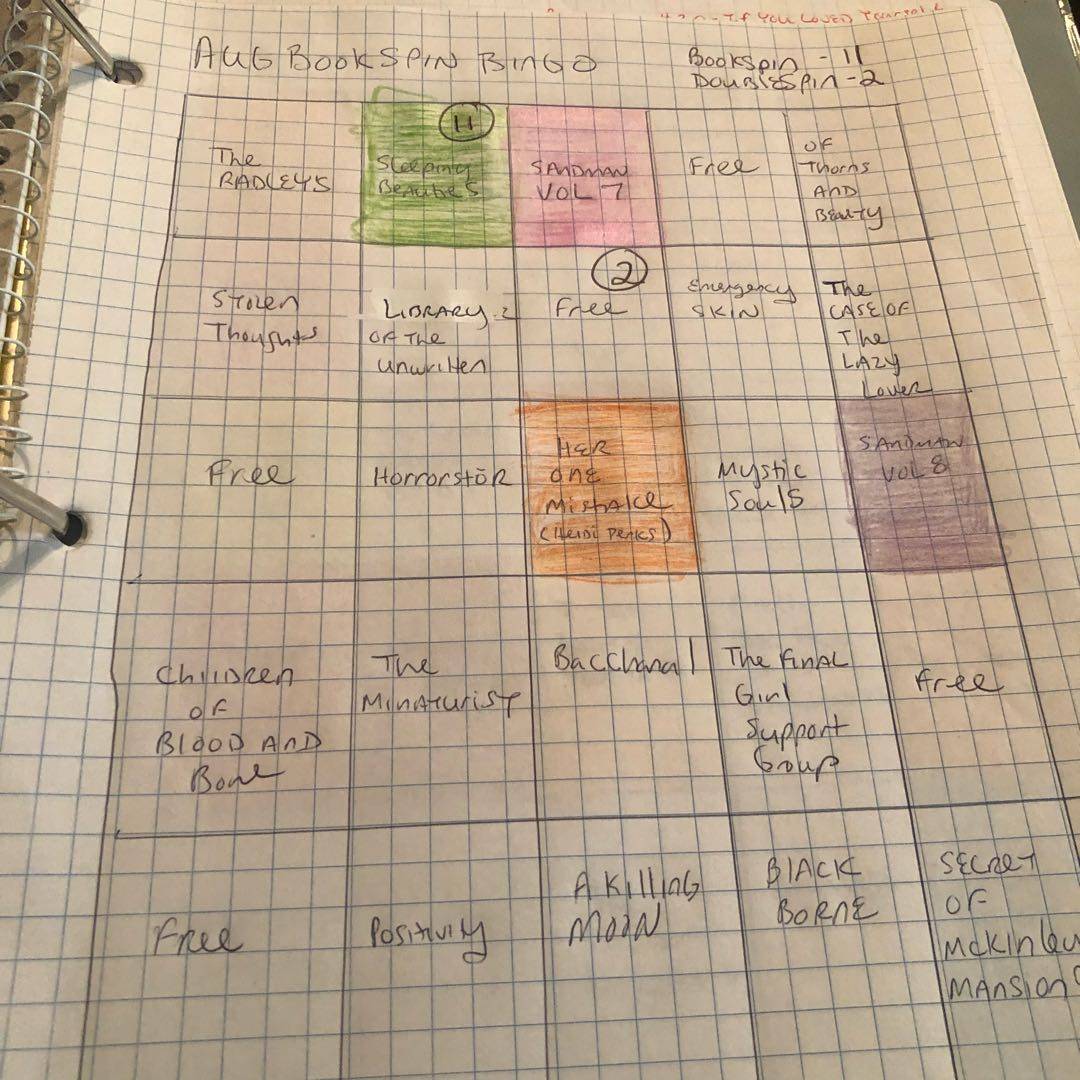 If You Loved
AUG BOOKSPIN BINGO
Bookspin - 11
DoubleSpin - 2
The
RADLEYS
11
Sleeping
Beauties
SANDMAN
VOL 7
Free
OF
Thorns
AND
Beauty
Stolen
Thoughts
LIBRARY
OF THE
Unwritten
2
Free
Emergency
SKIN
The
CASE OF
The
LAZY
Lover
Free
Horrorstör
HER
One
Mistake
(Heidi Perks)
Mystic
Souls
SANDMAN
VOL 8
Children
OF
Blood AND
Bone
The
Minaturist
Bacchanal
The Final
Girl
Support
Group
Free
Free
Positivity
A Killing
Moon
BlACK
BORNE
SECRET
OF
McKinley
MANSION